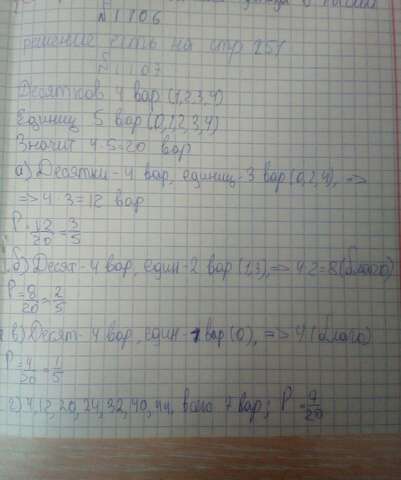 №1106
решение есть на стр 251
№1107
Десятков 4 вар (1,2,3,4)
Единиц 5 вар (0,1,2,3,4)
Значит 4·5=20 вар
а) Десятки-4 вар, единиц-3 вар (0,2,4), =>
=> 4·3=12 вар
P=12/20=3/5
б) Десят-4 вар, един-2 вар (1,3), => 4·2=8 (благо)
P=8/20=2/5
в) Десят-4 вар, един-1 вар (0), => 4 (благо)
P=4/20=1/5
г) 4,12,20,24,32,40,44, всего 7 вар; P=